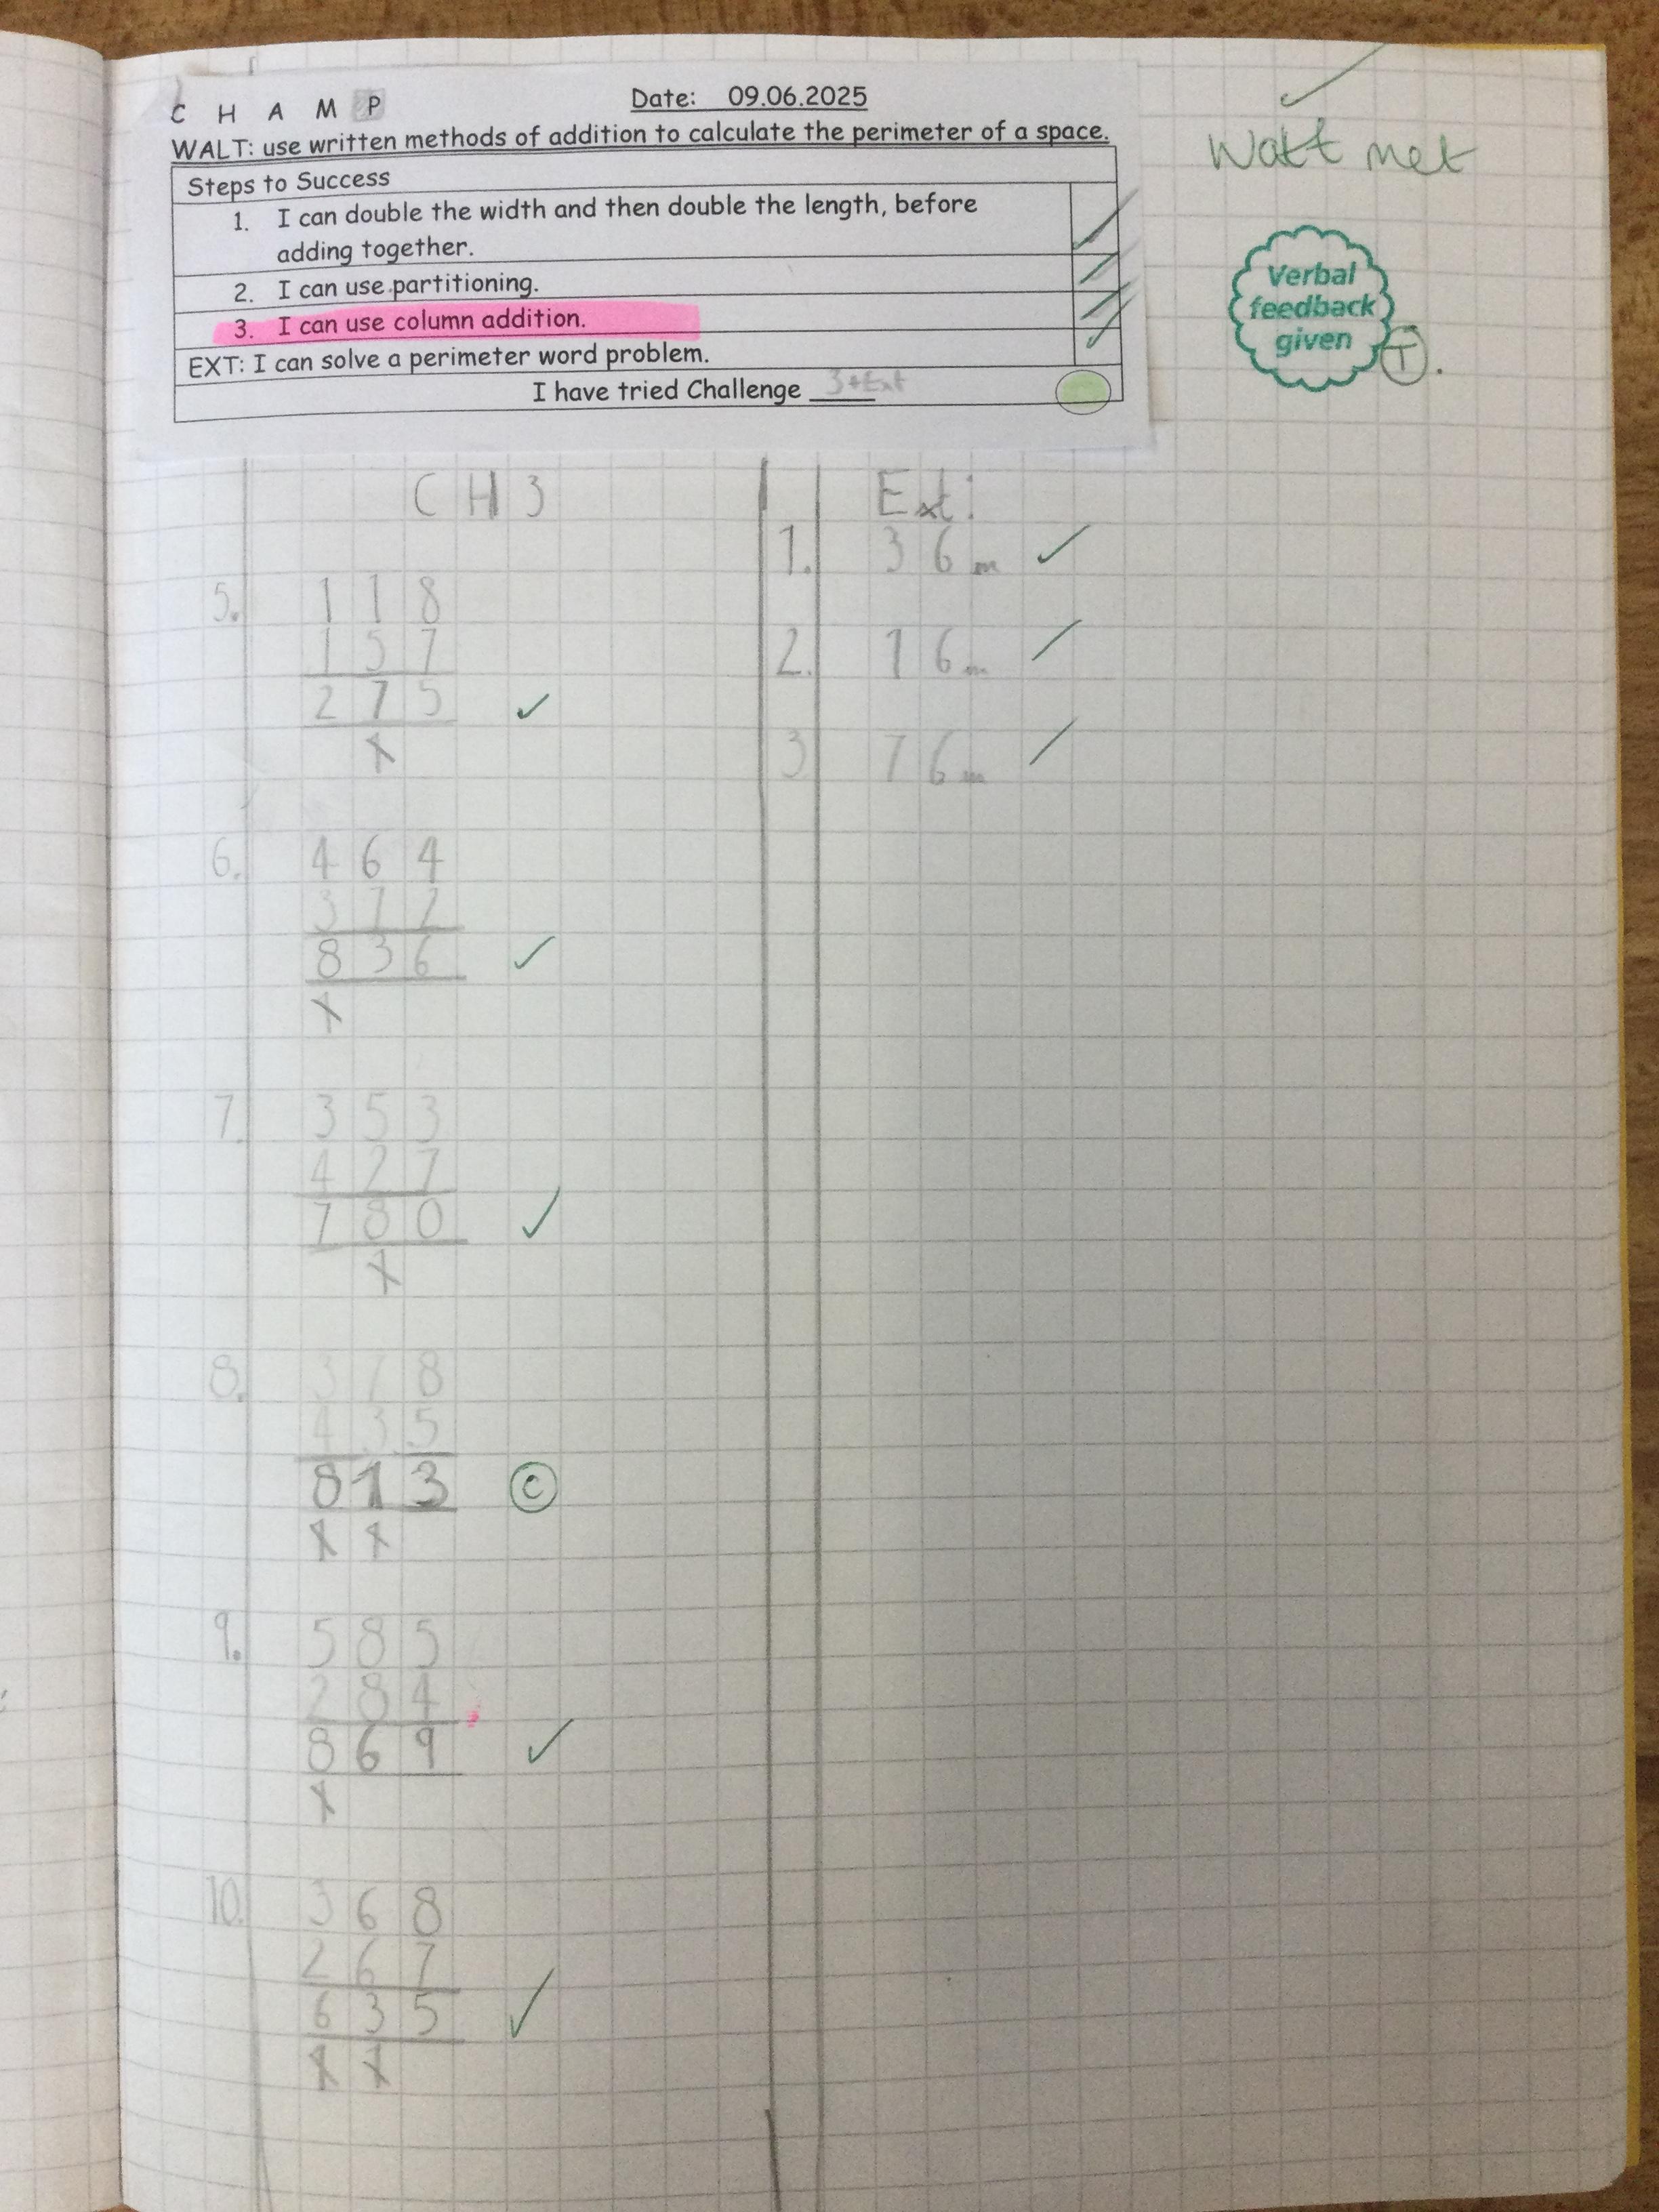 C H A M P
Date: 09.06.2025
WALT: use written methods of addition to calculate the perimeter of a space.
Steps to Success
1. I can double the width and then double the length, before
adding together.
2. I can use partitioning.
3. I can use column addition.
EXT: I can solve a perimeter word problem.
I have tried Challenge 3+Ext
Walt met
Verbal
feedback
given
T.
CH3
5. 118
157
275
1
6. 464
372
836
1
7. 353
427
780
1
8. 378
435
813
1 1
C
9. 585
284
869
1
10. 368
267
635
1 1
Ext:
1. 36m
2. 16m
3 76m